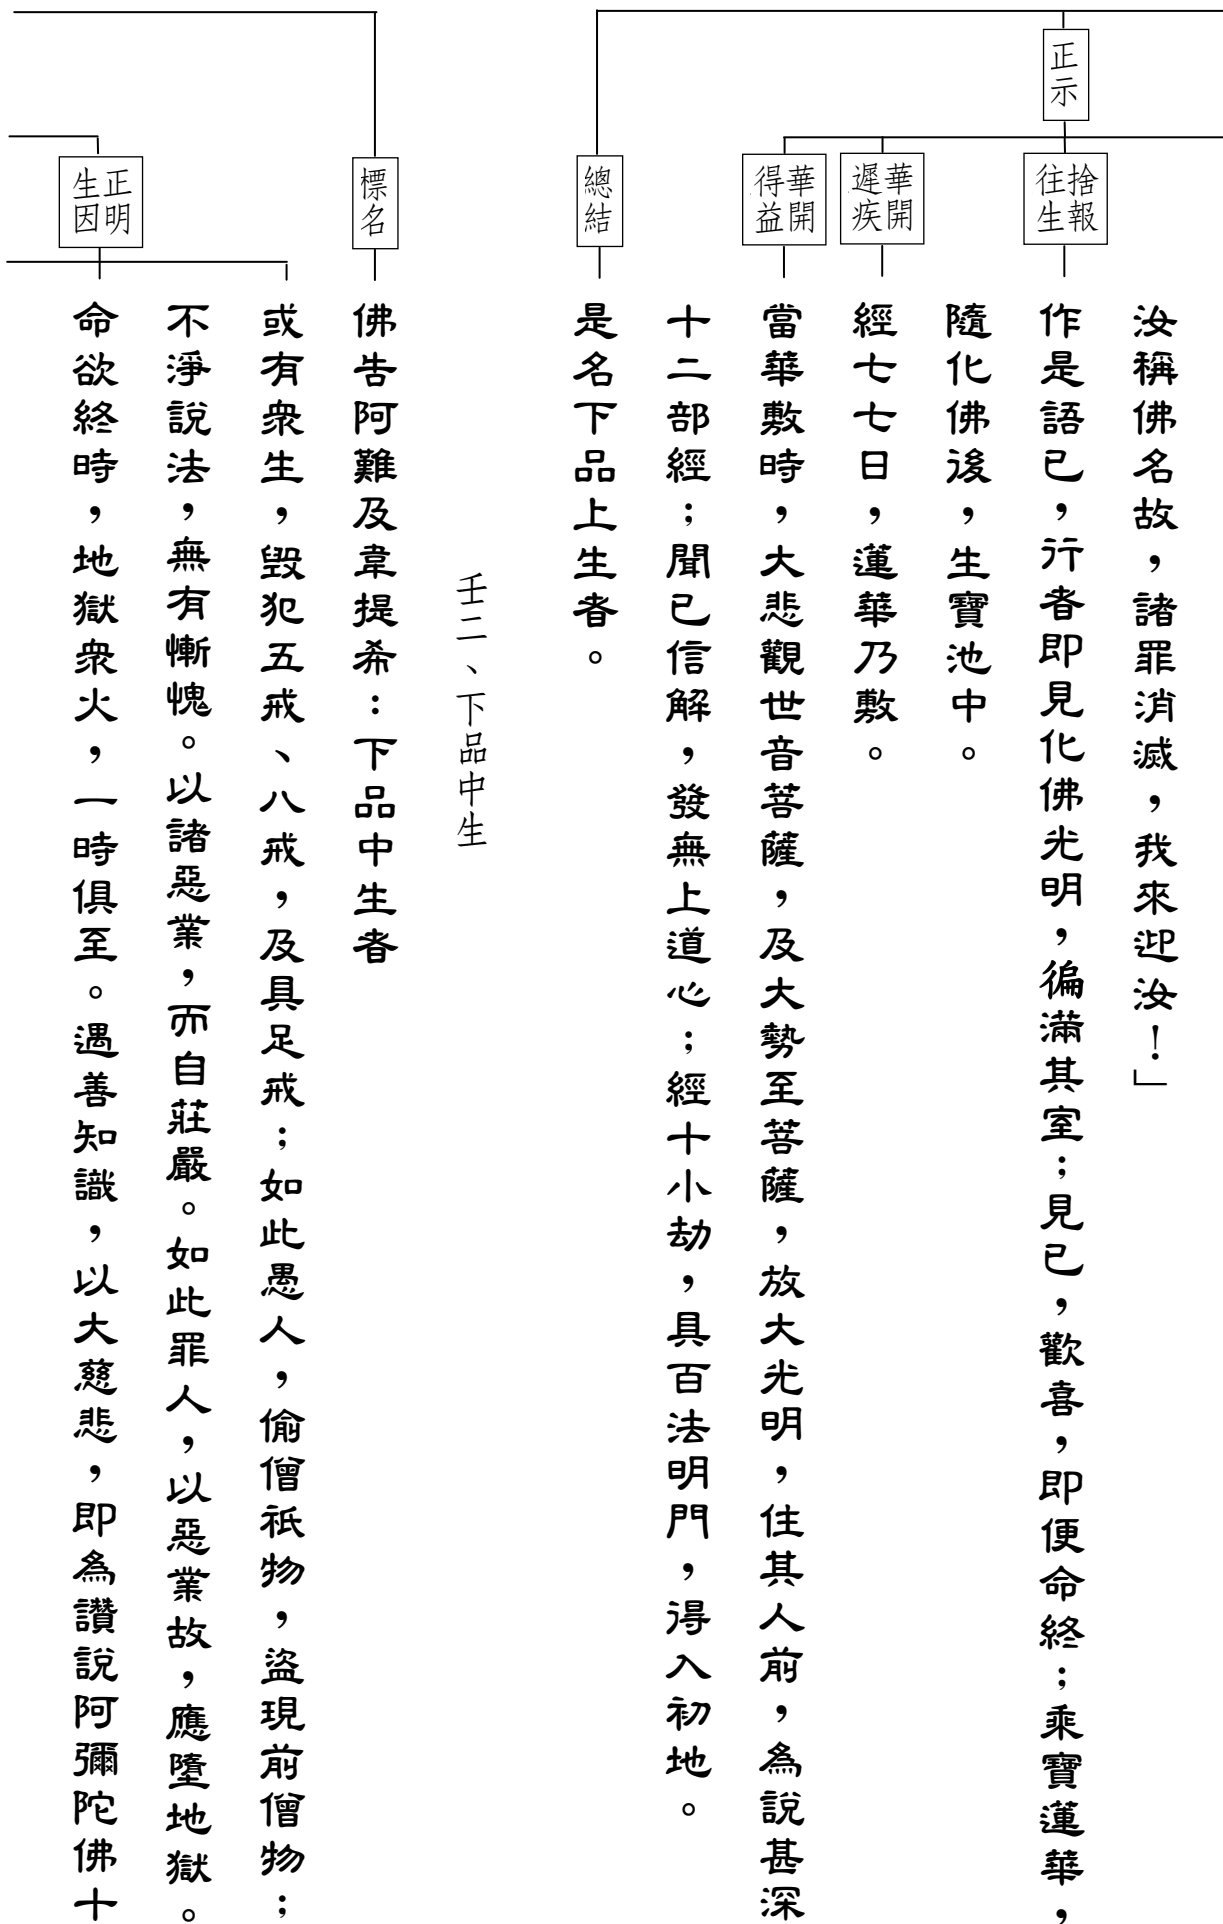 正示
汝稱佛名故，諸罪消滅，我來迎汝！」
捨報往生
作是語已，行者即見化佛光明，徧滿其室；見已，歡喜，即便命終；乘寶蓮華，
隨化佛後，生寶池中。
華開遲疾
經七七日，蓮華乃敷。
華開得益
當華敷時，大悲觀世音菩薩，及大勢至菩薩，放大光明，住其人前，為說甚深
十二部經；聞已信解，發無上道心；經十小劫，具百法明門，得入初地。
總結
是名下品上生者。
壬二、下品中生
標名
佛告阿難及韋提希：下品中生者
或有眾生，毀犯五戒、八戒，及具足戒；如此愚人，偷僧祇物，盜現前僧物；
不淨說法，無有慚愧。以諸惡業，而自莊嚴。如此罪人，以惡業故，應墮地獄。
正明生因
命欲終時，地獄眾火，一時俱至。遇善知識，以大慈悲，即為讚說阿彌陀佛十